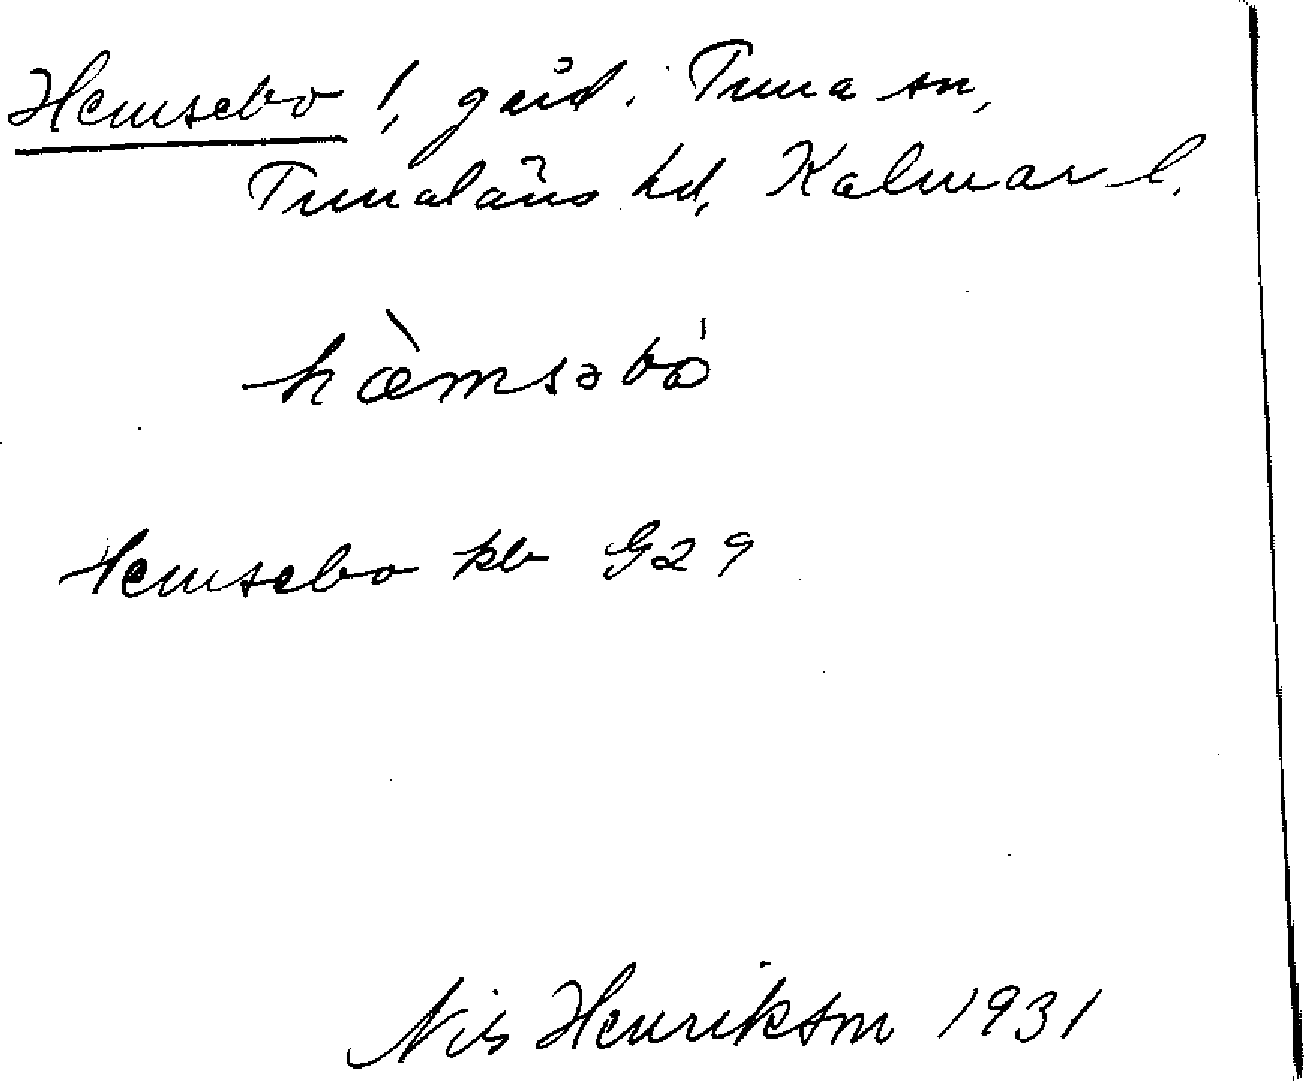 Hemsebo !, gård. Tuna sn,
Tunaläns hd, Kalmar l.
hæ̀msəbó
Hemsebo kb G29
Nils Henrikson 1931